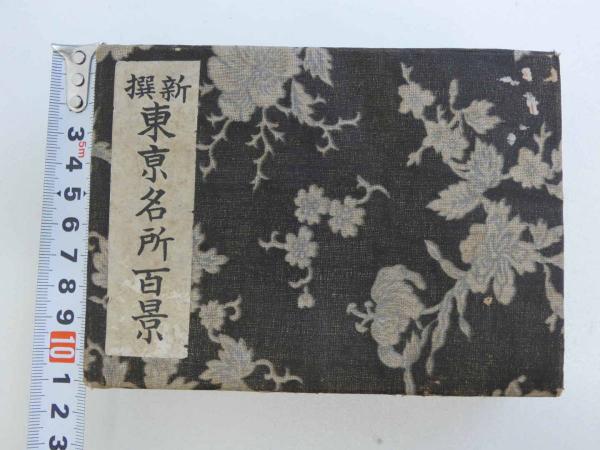 新撰
東京名所百景
3 4 5 6 7 8 9 10 1 2 3
5m